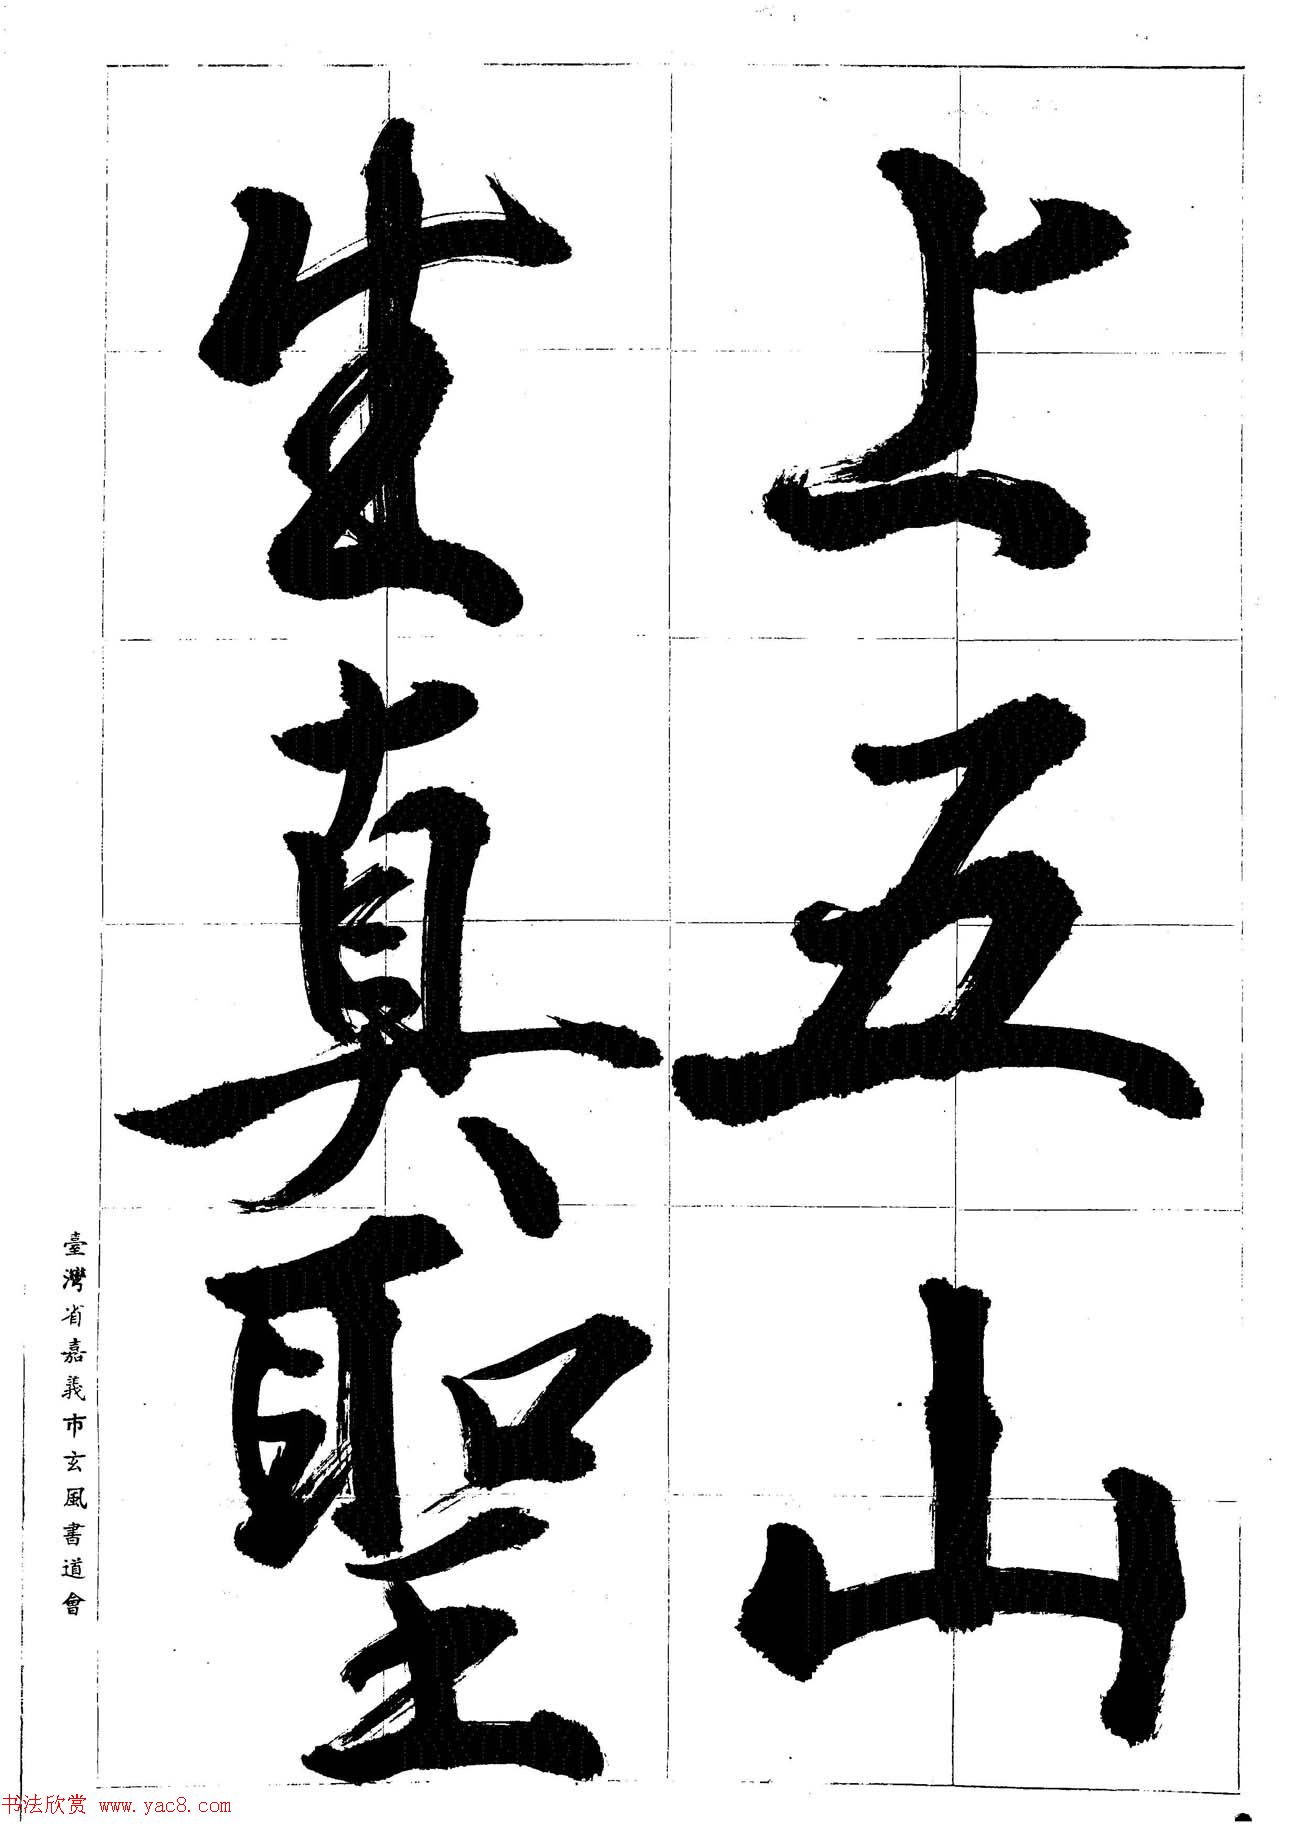 上五山
生真聖
臺灣省嘉義市玄風書道會
书法欣赏 www.yac8.com